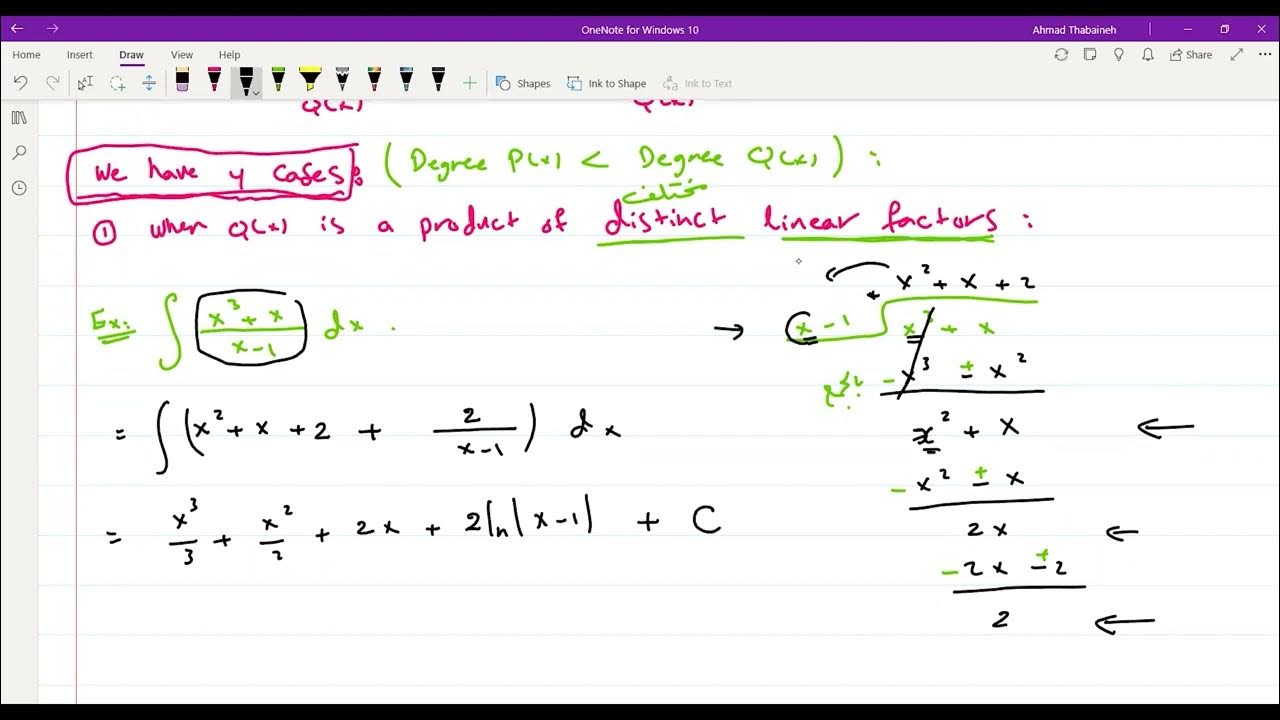 OneNote for Windows 10
Ahmad Thabaineh
Home Insert Draw View Help
Share
Shapes Ink to Shape Ink to Text
Q(x) Q(x)
We have 4 cases: (Degree P(x) < Degree Q(x)) :
مختلف
① when Q(x) is a product of distinct linear factors :
Ex: ∫ (x³ + x)/(x-1) dx .
= ∫ (x² + x + 2 + 2/(x-1)) dx
= x³/3 + x²/2 + 2x + 2 ln|x-1| + C
x² + x + 2
→ x - 1 x³ + x
- x³ ± x²
x² + x ←
- x² ± x
2x ←
- 2x ± 2
2 ←